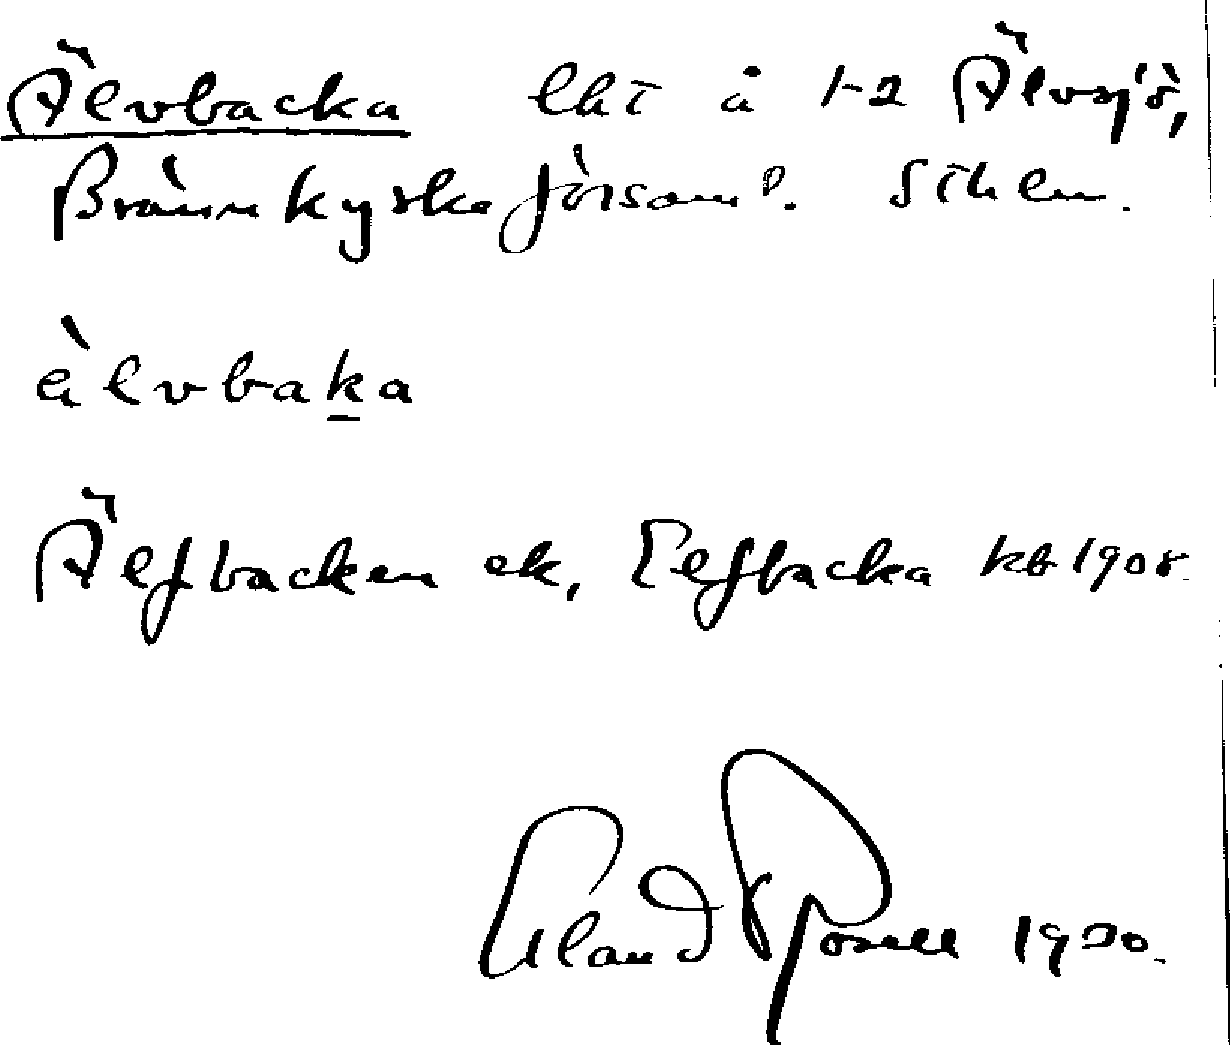 Älvbacka lht å 1-2 Älvsjö,
Brännkyrka förs:saml. Sthlm.
älvbaka
Älfbacken ek, Elfbacka kb 1908.
Erland Rosell 1930.